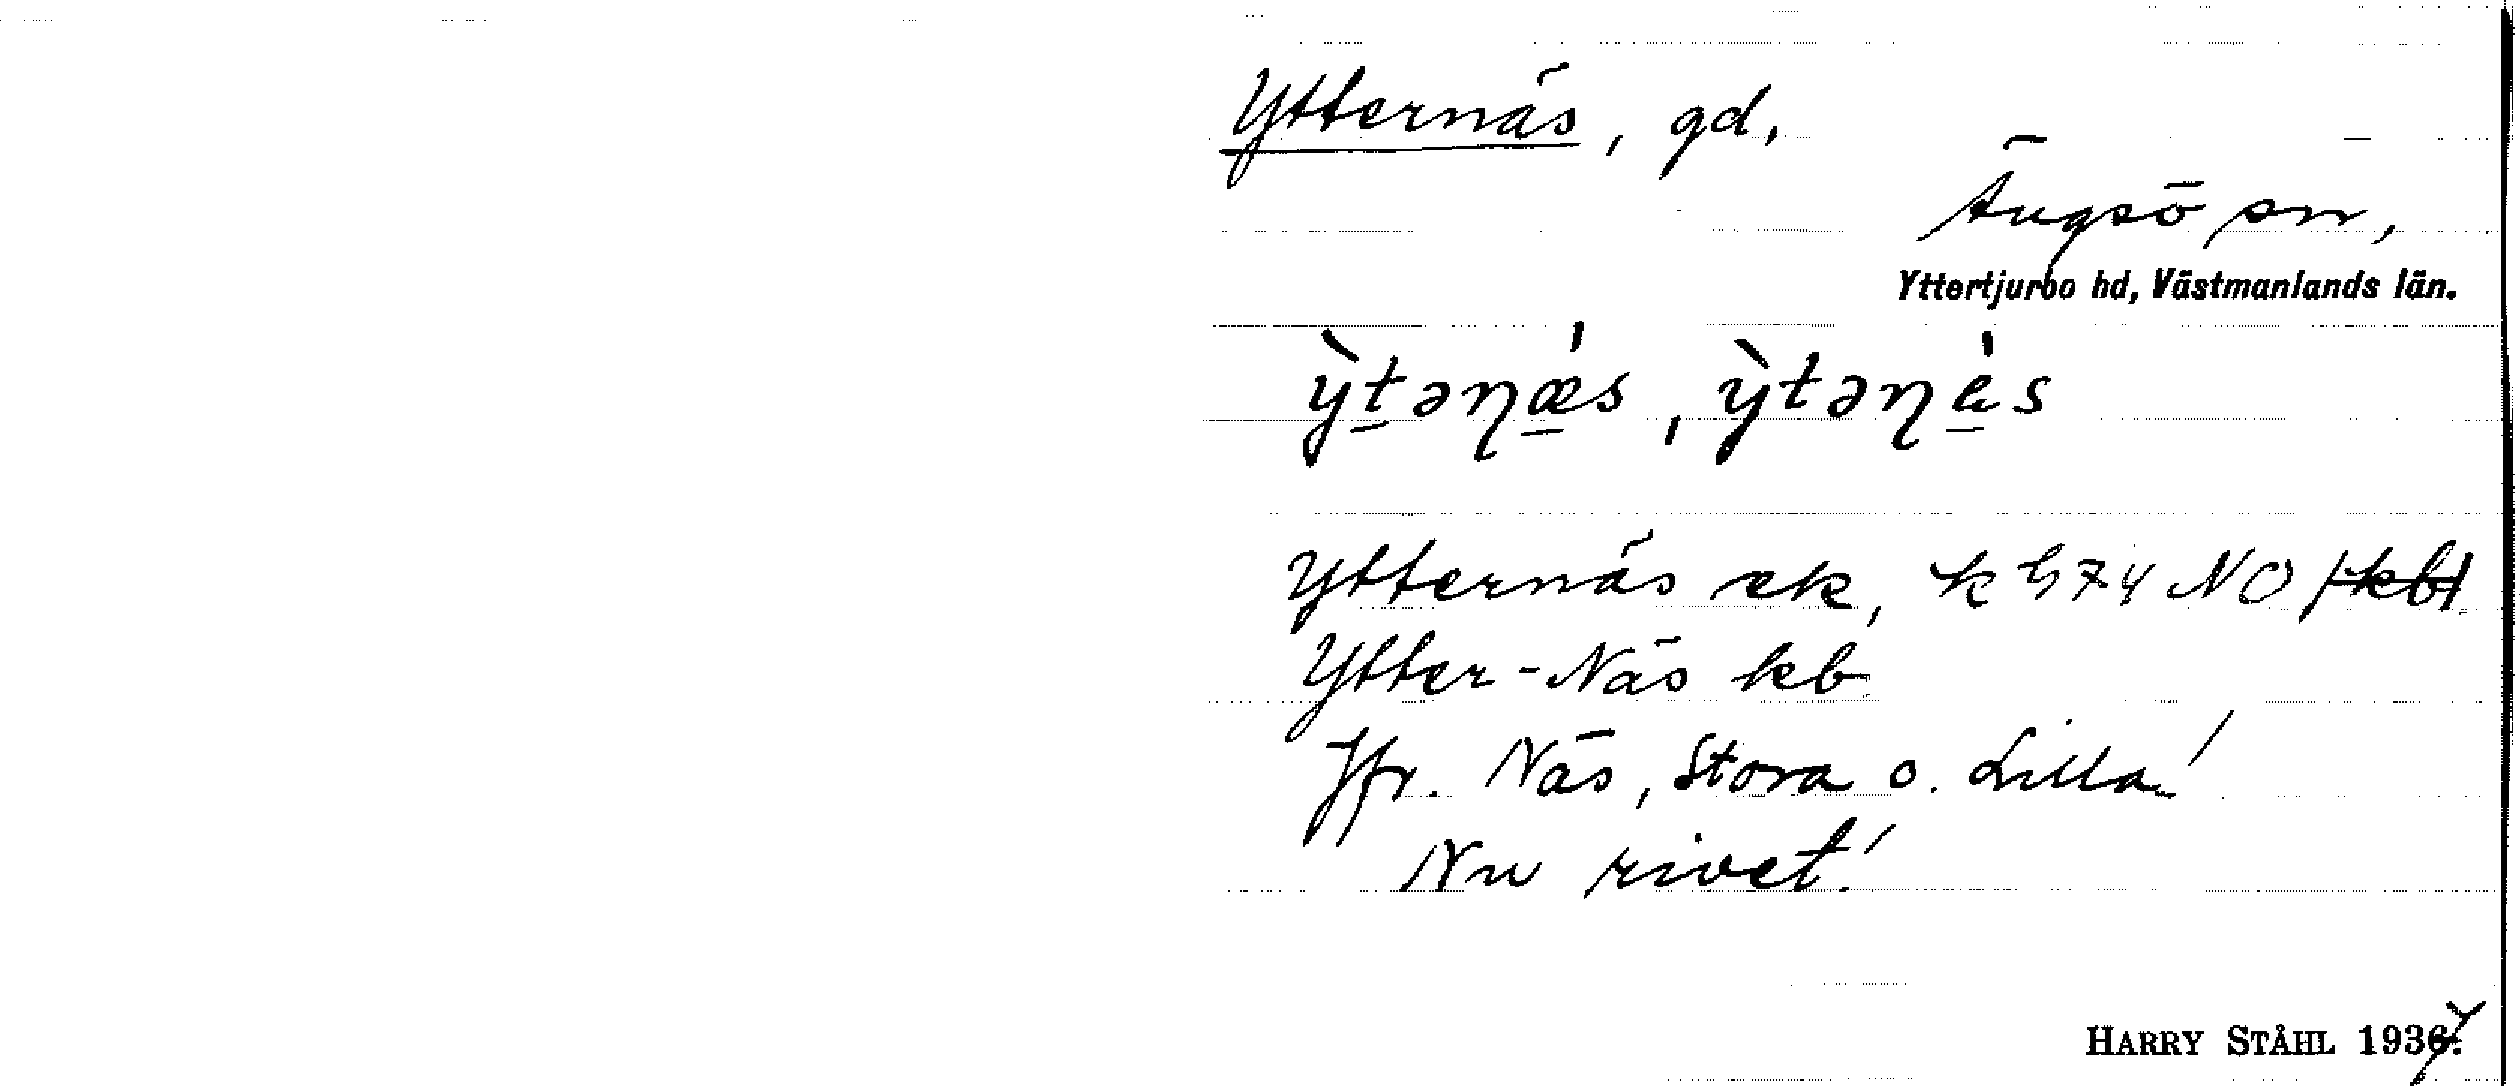 Ytternäs, gd,
Ängsö sn,
Yttertjurbo hd, Västmanlands län.
ỳtəṇǽs, ỳtəṇǽs
Ytternäs ek, k h 74 NO
Ytter-Näs kb
Jfr. Näs, Stora o. Lilla!
Nu rivet!
HARRY STÅHL 1937.